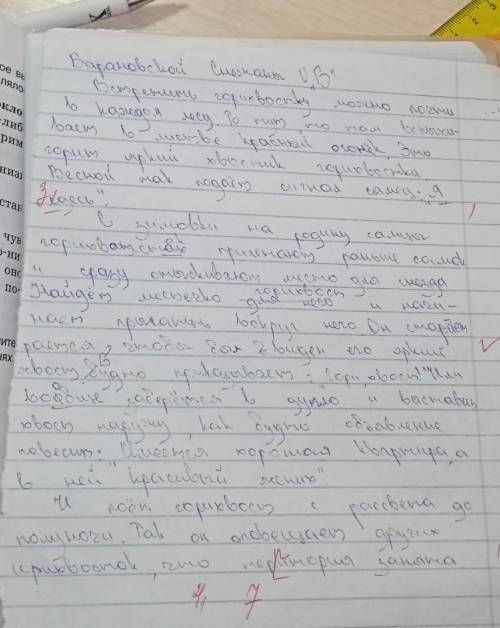 Барановской Снежаны V„В"
Встретить горихвостку можно почти
в каждом лесу. То тут, то там вспыхи-
вает в листве красный огонёк. Это
горит яркий хвостик горихвостки
Весной так подаёт сигнал самец: „Я
Здесь".
С зимовки на родину самцы
прилетают раньше самок
и сразу отыскивают место для гнезда
Найдёт местечко горихвост для него и начи-
нает прыгать вокруг него Он старает
растся, чтобы был виден его яркий
хвост, будто приказывает: "Гори, хвост!" Или
вообще заберётся в дупло и выставит
хвост наружу, как будто объявление
повесит: "Имеется хорошая квартира, а
в ней красивый жених"
И поёт горихвост с рассвета до
полуночи. Так он оповещает других
горихвосток, что терртория занята
4/ 7